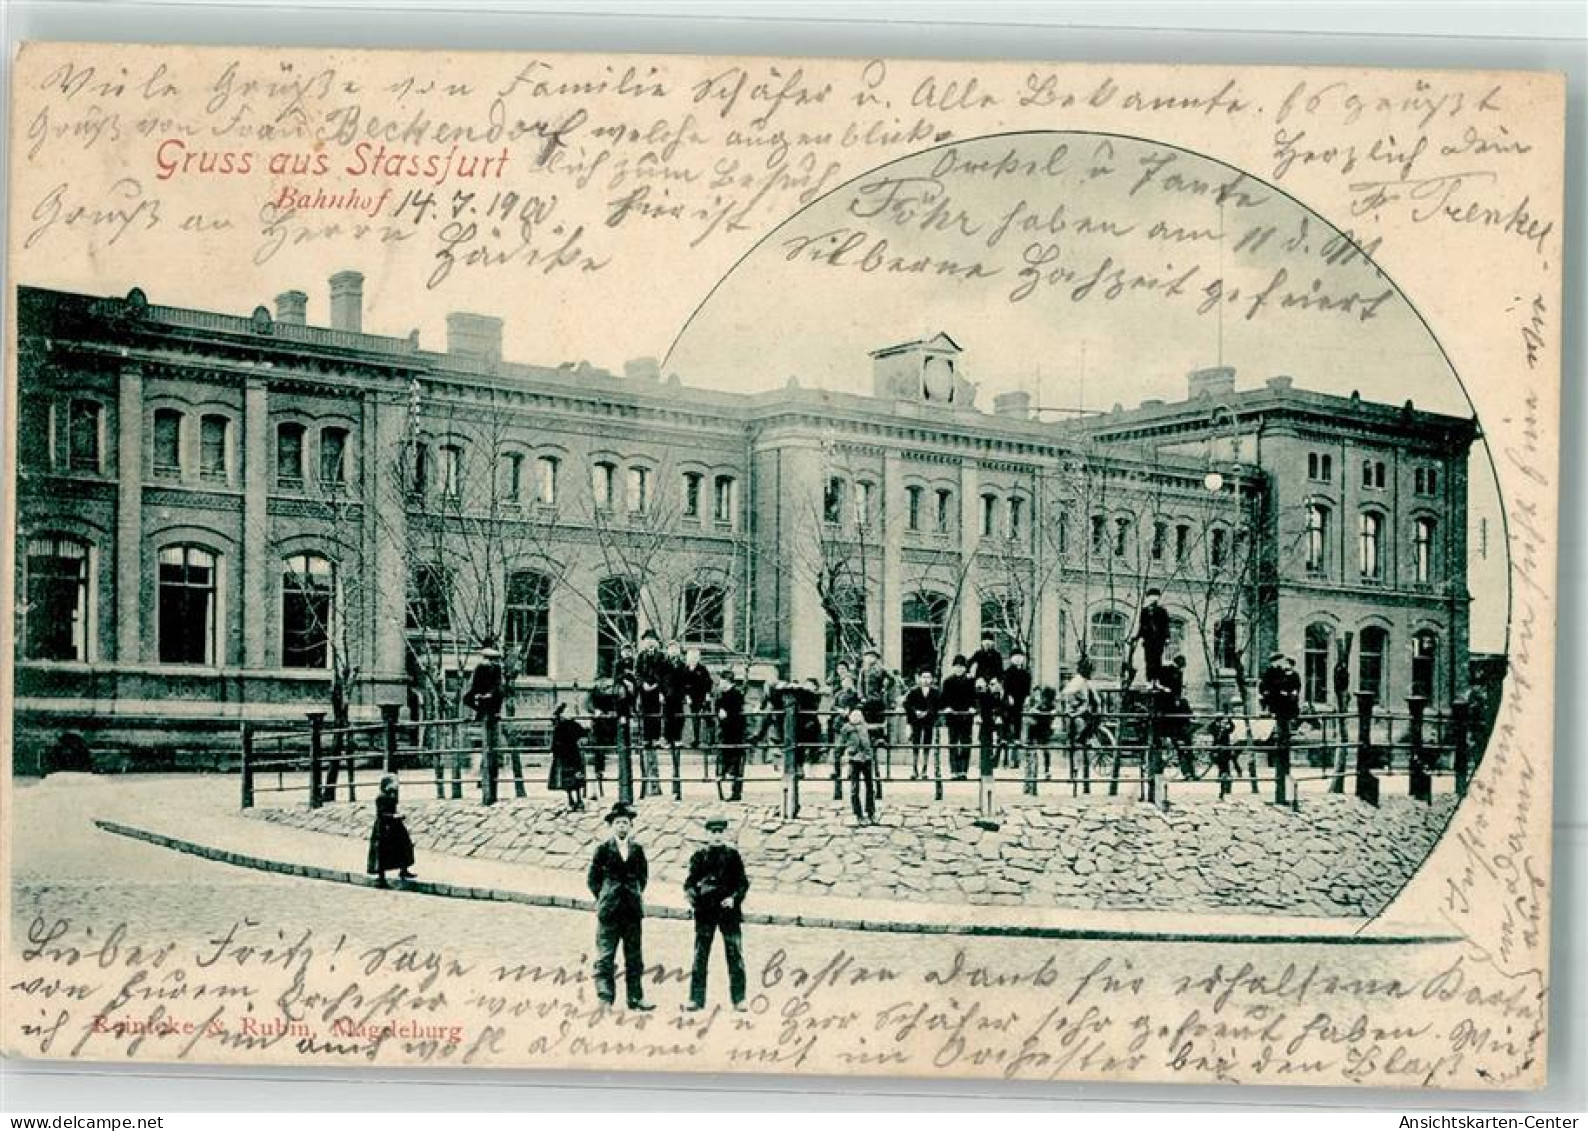 Viele Grüße von Familie Schäfer u. Alle Bekannte. Es grüßt
Gruß von Frau Beckendorf welche augenblick
Herzlich dein
Gruss aus Stassfurt
lich zum Besuch
Onkel u Tante
F. Trenkel
Bahnhof 14.7.1900
hier ist
Föhr haben am 11 d. M.
Gruß an Herrn
Hädicke
Silberne Hochzeit gefeiert
Instrumenten sieht
auf
Lieber Fritz! Sage meinen besten Dank für erhaltene Karte
von Eurem Orchester worüber ich u Herr Schäfer sehr gefreut haben. Wie
Reinicke & Rubin, Magdeburg
ich sehe sind auch wohl Damen mit im Orchester bei den Blaß
Ansichtskarten-Center